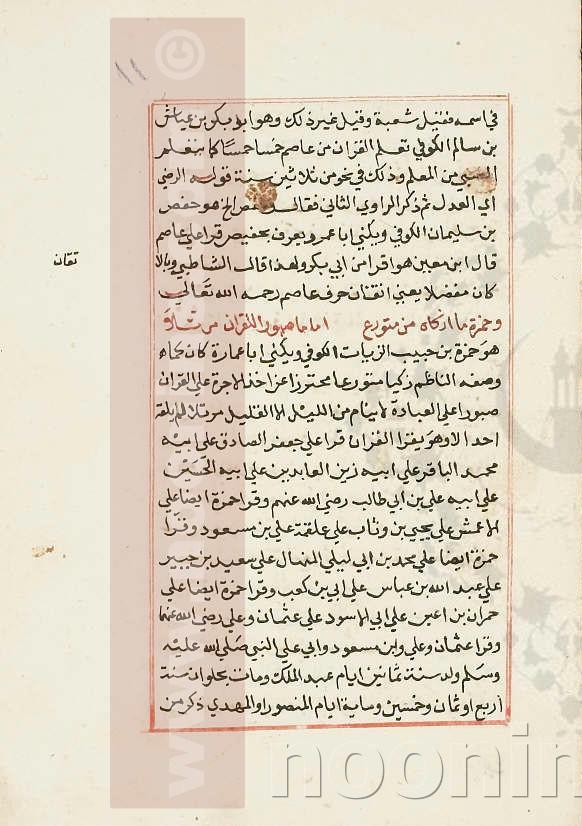 في اسمه فقيل شعبة وقيل غير ذلك وهو ابو بكر بن عياش
بن سالم الكوفي تعلم القران من عاصم خمسا خمسا كما يتعلم
الصبي من المعلم وذلك في نحو من ثلاثين سنة قوله الرضي
اي العدل ثم ذكر الراوي الثاني فقال وحفص الخ هو حفص
بن سليمان الكوفي ويكني ابا عمر ويعرف بحفيص قرا علي عاصم
قال ابن معين هو اقرا من ابي بكر ولهذا قال الشاطبي وبالا
تقان
كان مفضلا يعني اتقنان حرف عاصم رحمه الله تعالي
وحمزة ما ازكاه من متورع اماما صبورا للقران مرتلا
هو حمزة بن حبيب الزيات الكوفي ويكني ابا عمارة كان كماه
وصفه الناظم زكيا متورعا محترزا عن اخذ الاجرة علي القران
صبورا علي العبادة لا ينام من الليل الا القليل مرتلا لم يلقه
احد الا وهو يقرا القران قرا علي جعفر الصادق علي ابيه
محمد الباقر علي ابيه زين العابدين علي ابيه الحسين
علي ابيه علي بن ابي طالب رضي الله عنهم وقرا حمزة ايضا علي
الاعمش علي يحيي بن وثاب علي علقمة علي بن مسعود وقرا
حمزة ايضا علي محمد بن ابي ليلي المنهال علي سعيد بن جبير
علي عبد الله بن عباس علي ابي بن كعب وقرا حمزة ايضا علي
حمران بن اعين علي ابي الاسود علي عثمان وعلي رضي الله عنهما
وقرا عثمان وعلي وابن مسعود وابي علي النبي صلي الله عليه
وسلم ولد سنة ثمانين ايام عبد الملك ومات بحلوان سنة
اربع او ثمان وخمسين وماية ايام المنصور او المهدي ذكر من
noonin
www
©